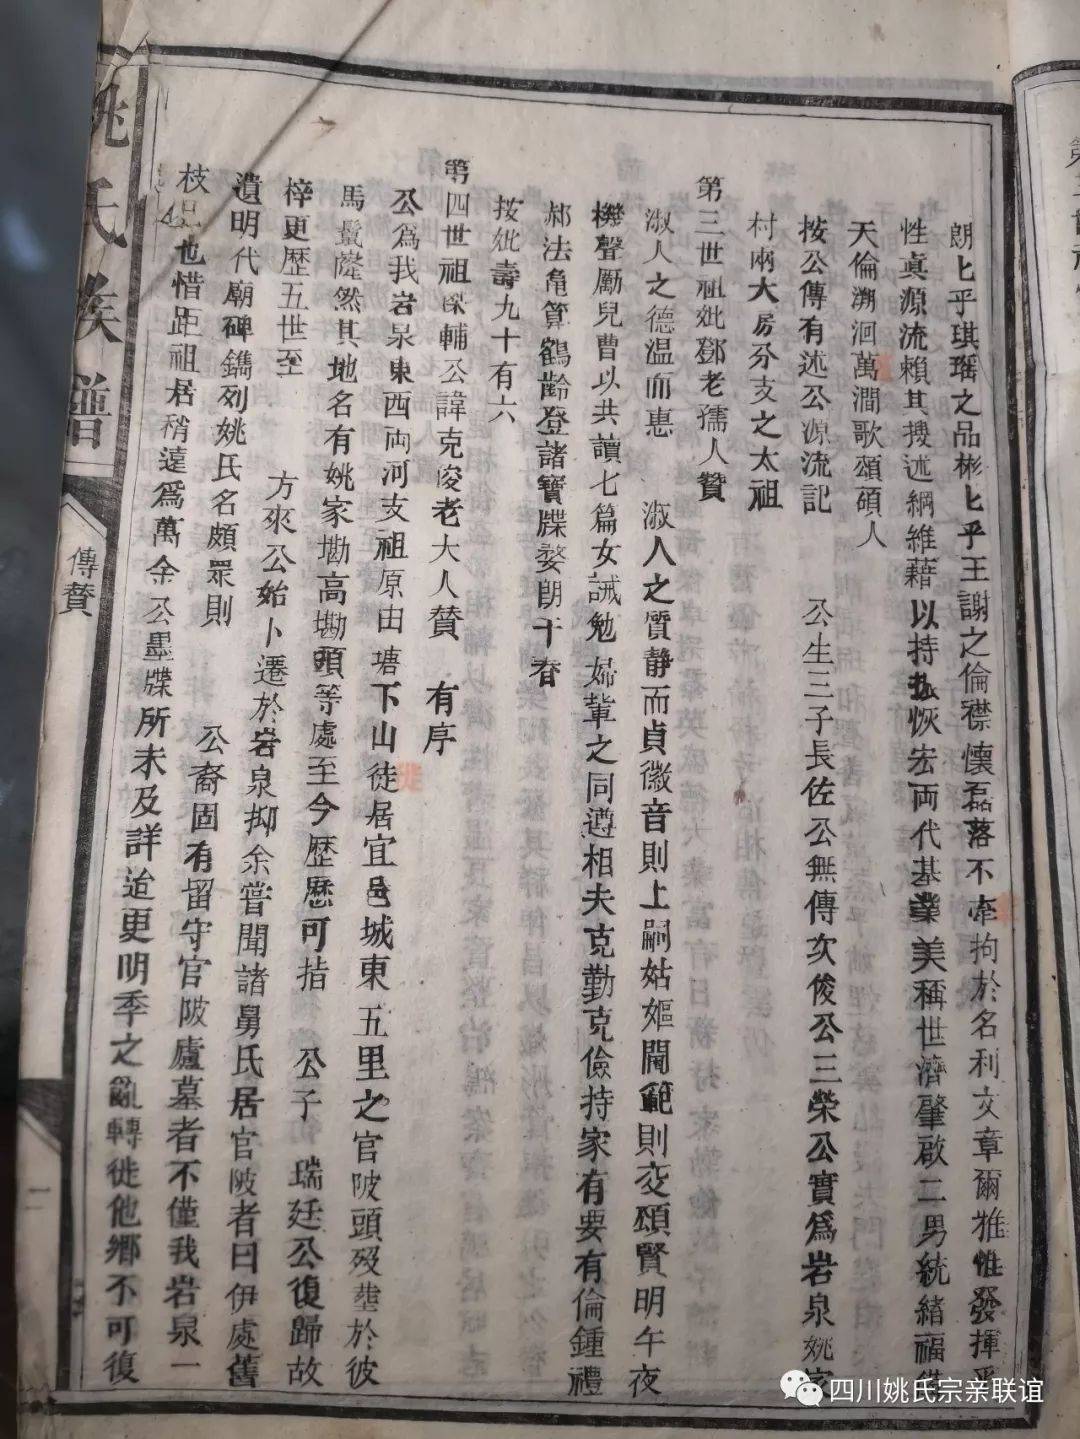 朗匕乎琪瑤之品彬匕乎王謝之倫襟懷磊落不牽拘於名利文章爾雅惟發揮乎
性眞源流賴其搜述綱維藉以持扐恢宏两代基業美稱世濟肇啟二男統緒福
天倫溯洄萬澗歌頌碩人
按公傳有述公源流記 公生三子長佐公無傳次俊公三榮公實爲岩泉姚家
村兩大房分支之太祖
第三世祖妣鄧老孺人贊
淑人之德溫而惠 淑人之質静而貞徽音則上嗣姑嫗閫範則交頌賢明午夜
機聲勵兒曹以共讀七篇女誡勉婦軰之同遵相夫克勤克儉持家有要有倫鍾禮
郝法龟算鶴齡登諸寶牒婺朗千春
按妣壽九十有六
第四世祖傑輔公諱克俊老大人贊 有序
公爲我岩泉東西两河支祖原由塘下山徒居宜邑城東五里之官陂頭殁塟於彼
馬鬛窿然其地名有姚家勘高勘頭等處至今歴歴可指 公子 瑞廷公復歸故
梓更歴五世至 方來公始卜遷於岩泉抑余嘗聞諸舅氏居官陂者曰伊處舊
遺明代廟碑鐫列姚氏名頗衆則 公裔固有留守官陂廬墓者不僅我岩泉一
枝已也惜距祖居稍遠爲萬金公墨牒所未及詳迨更明季之亂轉徙他鄉不可復
姚氏族譜
傳贊
二
四川姚氏宗亲联谊